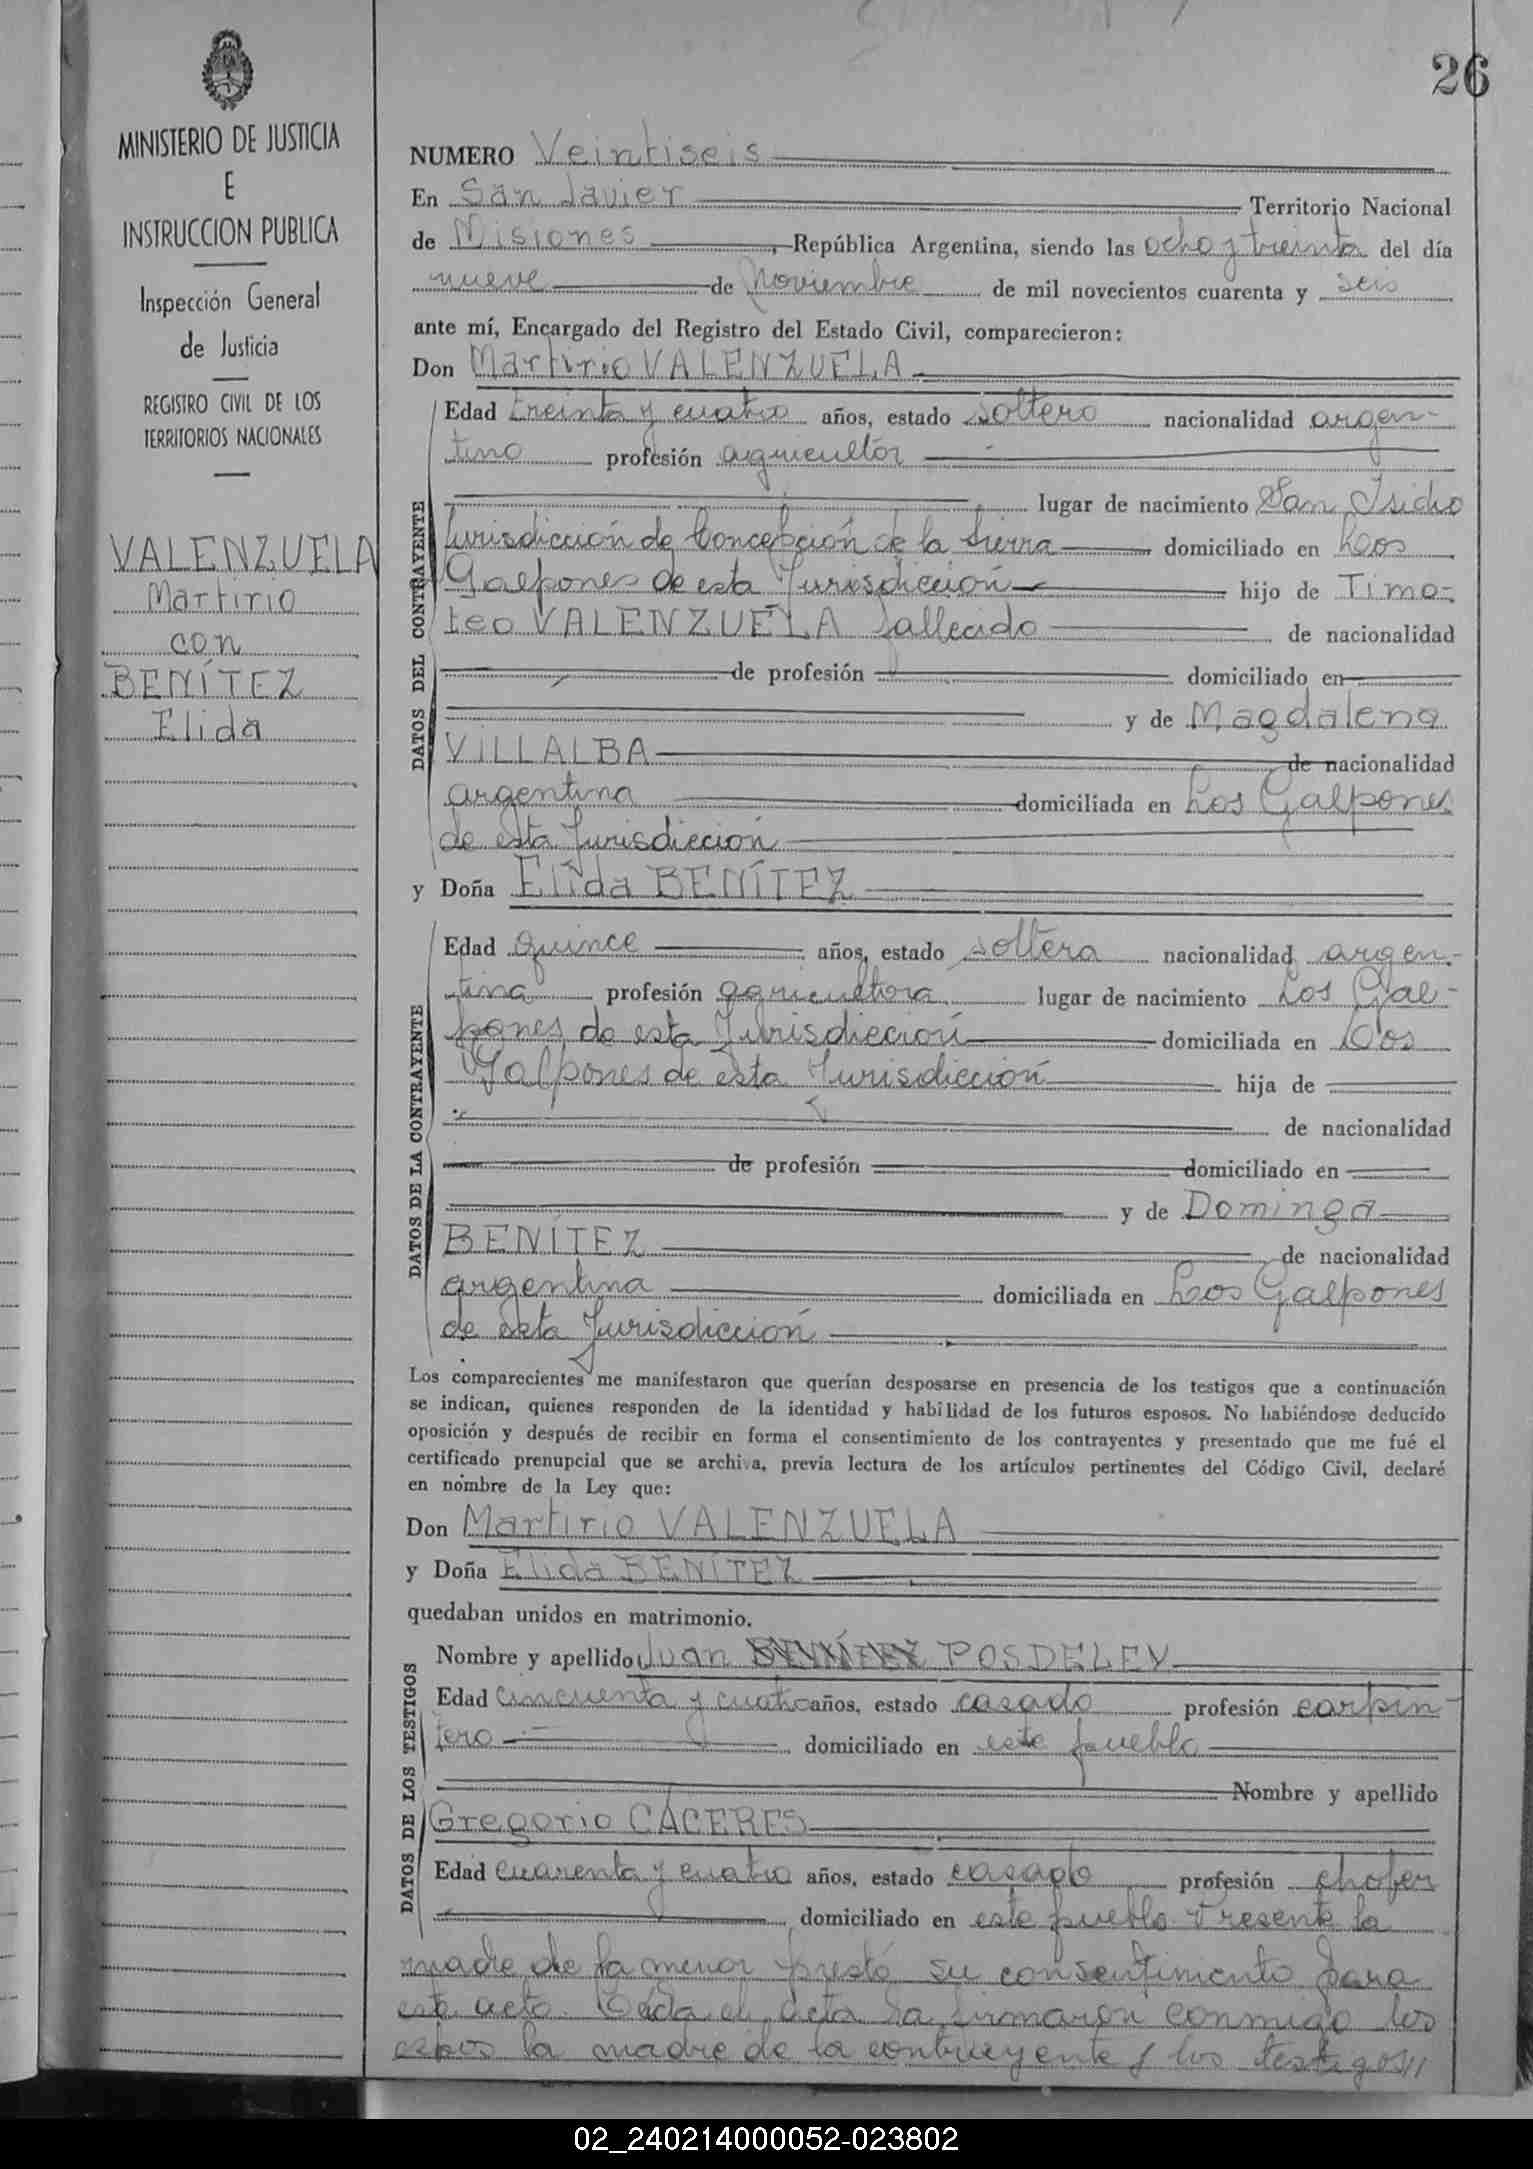 26
MINISTERIO DE JUSTICIA
E
INSTRUCCION PUBLICA
Inspección General
de Justicia
REGISTRO CIVIL DE LOS
TERRITORIOS NACIONALES
VALENZUELA
Martirio
con
BENÍTEZ
Elida
NUMERO Veintiseis
En San Javier Territorio Nacional
de Misiones, República Argentina, siendo las ocho y treinta del día
nueve de Noviembre de mil novecientos cuarenta y seis
ante mí, Encargado del Registro del Estado Civil, comparecieron:
Don Martirio VALENZUELA
DATOS DEL CONTRAYENTE
Edad treinta y cuatro años, estado soltero nacionalidad argen-
tino profesión agricultor
lugar de nacimiento San Isidro
Jurisdicción de Concepción de la Sierra domiciliado en Los
Galpones de esta Jurisdicción hijo de Timo-
teo VALENZUELA fallecido de nacionalidad
de profesión domiciliado en
y de Magdalena
VILLALBA de nacionalidad
argentina domiciliada en Los Galpones
de esta Jurisdicción
y Doña Elida BENÍTEZ
DATOS DE LA CONTRAYENTE
Edad quince años, estado soltera nacionalidad argen-
tina profesión agricultora lugar de nacimiento Los Gal-
pones de esta Jurisdicción domiciliada en Los
Galpones de esta Jurisdicción hija de
de nacionalidad
de profesión domiciliado en
y de Dominga
BENÍTEZ de nacionalidad
argentina domiciliada en Los Galpones
de esta Jurisdicción
Los comparecientes me manifestaron que querían desposarse en presencia de los testigos que a continuación
se indican, quienes responden de la identidad y habilidad de los futuros esposos. No habiéndose deducido
oposición y después de recibir en forma el consentimiento de los contrayentes y presentado que me fué el
certificado prenupcial que se archiva, previa lectura de los artículos pertinentes del Código Civil, declaré
en nombre de la Ley que:
Don Martirio VALENZUELA
y Doña Elida BENÍTEZ
quedaban unidos en matrimonio.
DATOS DE LOS TESTIGOS
Nombre y apellido Juan BENÍTEZ POSDELEY
Edad cincuenta y cuatro años, estado casado profesión carpin-
tero domiciliado en este pueblo
Nombre y apellido
Gregorio CÁCERES
Edad cuarenta y cuatro años, estado casado profesión chofer
domiciliado en este pueblo. Presente la
madre de la menor prestó su consentimiento para
este acto. Leída el acta la firmaron conmigo los
la madre de la contrayente y los testigos//
02_240214000052-023802